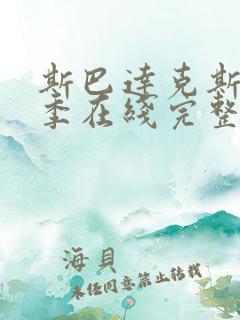 斯巴達克斯
季在綫完整
海貝
未經同意禁止轉載